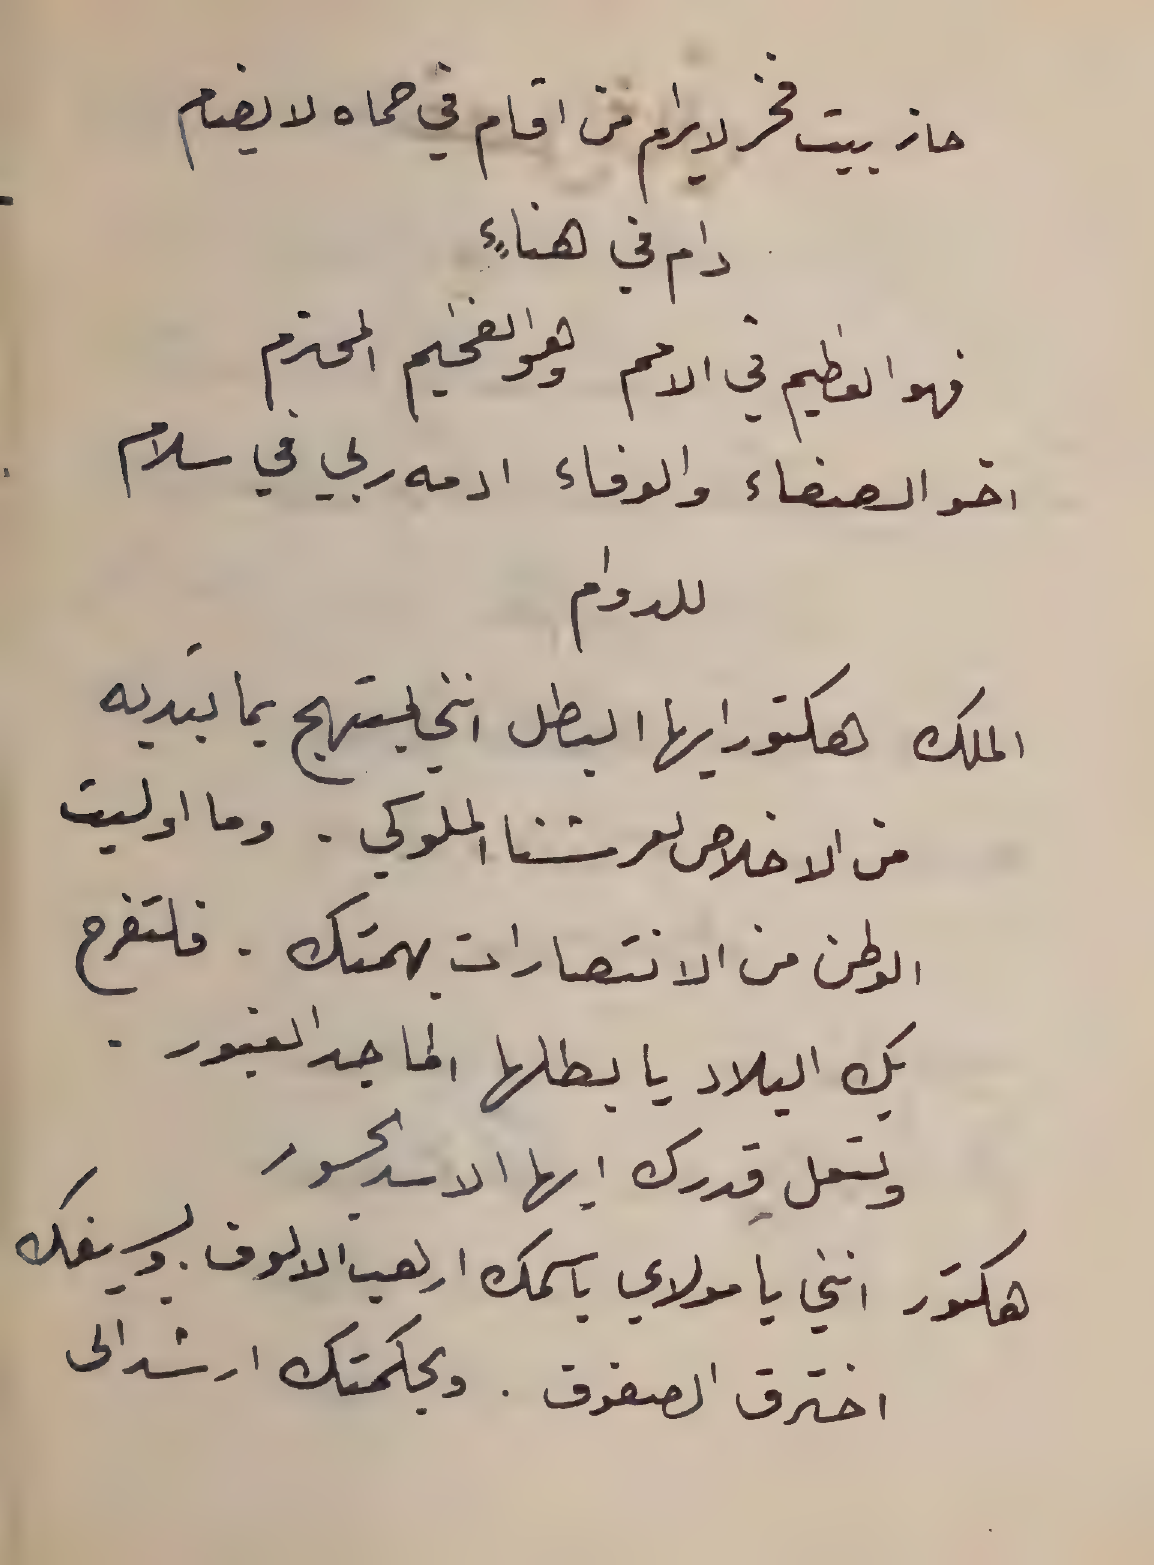 حاز بيت فخر لا يرام من اقام في حماه لا يضام
دام في هناءٍ
فهو العظيم في الامم وهو الفخيم المحترم
اخو الصفاء والوفاء ادمه ربي في سلام
للدوام
الملك هكتور ايها البطل انني لمبتهج بما تبديه
من الاخلاص لعرشنا الملوكي . وما اوليت
الوطن من الانتصارات بهمتك . فلتفرح
بك البلاد يا بطلها الماجد الغيور .
وليعل قدرك ايها الاسد الجسور
هكتور انني يا مولاي باسمك ارهب الالوف . وبسيفك
اخترق الصفوف . وبحكمتك ارشد الى